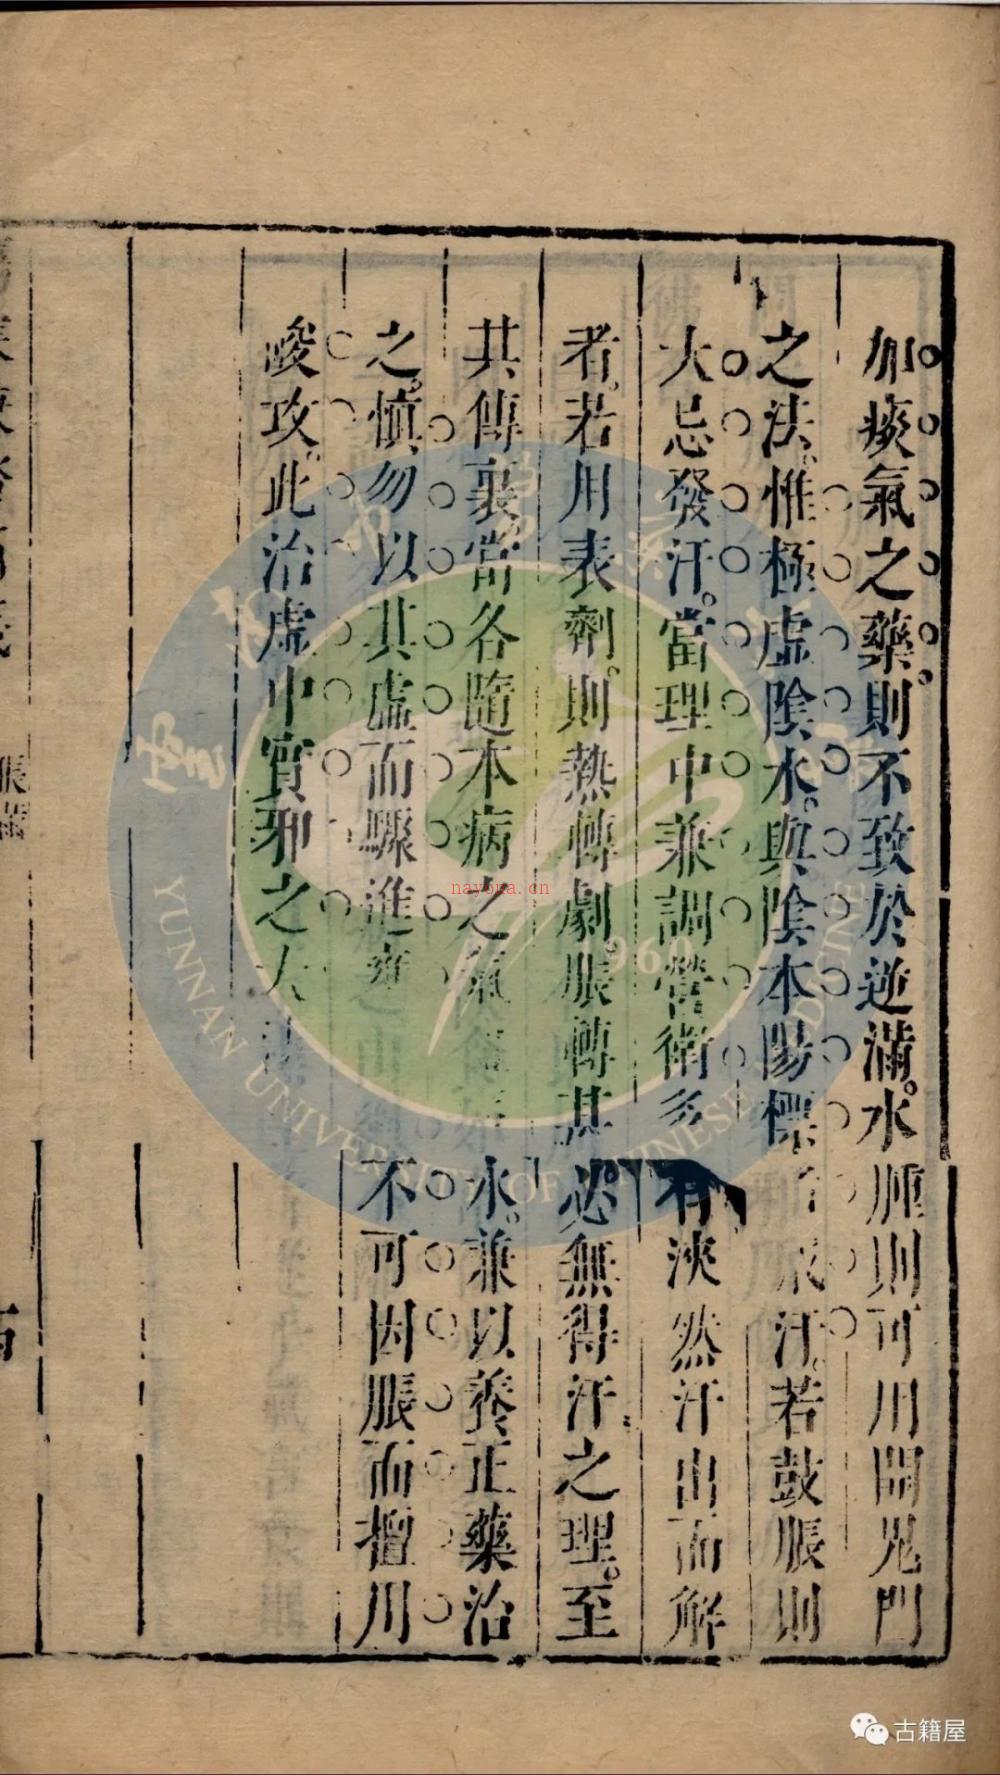 加痰氣之藥。則不致於逆滿。水腫則可用開鬼門
之法。惟極虛陰水。與陰本陽標 汗。若鼓脹則
大忌發汗。當理中兼調營衛多有浹然汗出而解
者。若用表劑。則熱轉劇。脹轉甚。必無得汗之理。至
其傳裏。當各隨本病之氣 水。兼以養正藥治
之。慎勿以其虛而驟進 不可因脹而擅用
峻攻。此治虛中實邪之大
脹
YUNNAN UNIVERSITY OF CHINESE MEDICINE
1960
nayona.cn
古籍屋